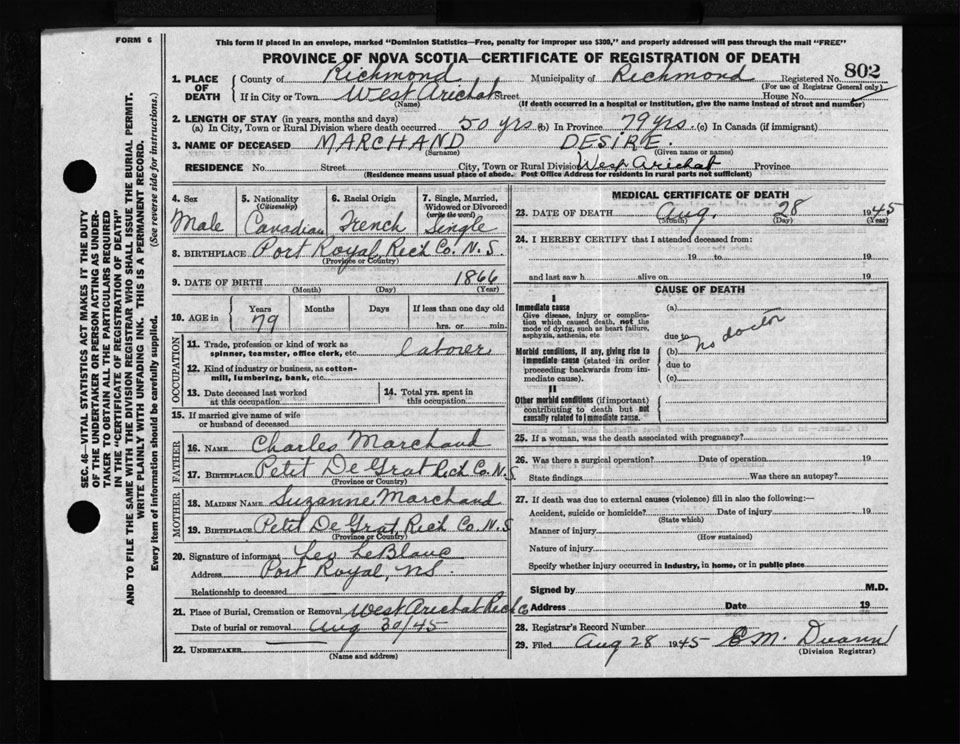 FORM 6
This form if placed in an envelope, marked "Dominion Statistics—Free, penalty for improper use $300," and properly addressed will pass through the mail "FREE"
PROVINCE OF NOVA SCOTIA—CERTIFICATE OF REGISTRATION OF DEATH
1. PLACE OF DEATH
County of Richmond Municipality of Richmond Registered No. 802
(For use of Registrar General only)
If in City or Town West Arichat Street House No.
(Name) (If death occurred in a hospital or institution, give the name instead of street and number)
2. LENGTH OF STAY (in years, months and days)
(a) In City, Town or Rural Division where death occurred 50 yrs (b) In Province 79 yrs. (c) In Canada (if immigrant)
3. NAME OF DECEASED MARCHAND DESIRE.
(Surname) (Given name or names)
RESIDENCE No. Street City, Town or Rural Division West Arichat Province
(Residence means usual place of abode. Post Office Address for residents in rural parts not sufficient)
4. Sex
Male
5. Nationality
(Citizenship)
Canadian
6. Racial Origin
French
7. Single, Married, Widowed or Divorced
(write the word)
Single
8. BIRTHPLACE Port Royal, Rich Co. N.S.
(Province or Country)
9. DATE OF BIRTH 1866
(Month) (Day) (Year)
10. AGE in
Years Months Days If less than one day old
79 hrs. or min.
OCCUPATION
11. Trade, profession or kind of work as spinner, teamster, office clerk, etc. laborer
12. Kind of industry or business, as cotton-mill, lumbering, bank, etc.
13. Date deceased last worked at this occupation
14. Total yrs. spent in this occupation
15. If married give name of wife or husband of deceased
FATHER
16. NAME Charles Marchand
17. BIRTHPLACE Petit De Grat Rich Co. N.S.
(Province or Country)
MOTHER
18. MAIDEN NAME Suzanne Marchand
19. BIRTHPLACE Petit De Grat Rich Co N.S
(Province or Country)
20. Signature of informant Leo LeBlanc
Address Port Royal, NS.
Relationship to deceased
21. Place of Burial, Cremation or Removal West Arichat Rich Co
Date of burial or removal Aug 30/45
22. UNDERTAKER
(Name and address)
MEDICAL CERTIFICATE OF DEATH
23. DATE OF DEATH Aug. 28 1945
(Month) (Day) (Year)
24. I HEREBY CERTIFY that I attended deceased from:
19 to 19
and last saw h alive on 19
CAUSE OF DEATH
I
Immediate cause
Give disease, injury or complication which caused death, not the mode of dying, such as heart failure, asphyxia, asthenia, etc
(a)
due to
Morbid conditions, if any, giving rise to immediate cause (stated in order proceeding backwards from immediate cause).
(b) no doctor
due to
(c)
II
Other morbid conditions (if important) contributing to death but not causally related to immediate cause.
25. If a woman, was the death associated with pregnancy?
26. Was there a surgical operation? Date of operation 19
State findings Was there an autopsy?
27. If death was due to external causes (violence) fill in also the following:—
Accident, suicide or homicide? Date of injury 19
(State which)
Manner of injury
(How sustained)
Nature of injury
Specify whether injury occurred in industry, in home, or in public place
Signed by M.D.
Address Date 19
28. Registrar's Record Number
29. Filed Aug 28 1945 E M.
(Division Registrar)
SEC. 46—VITAL STATISTICS ACT MAKES IT THE DUTY
OF THE UNDERTAKER OR PERSON ACTING AS UNDER-
TAKER TO OBTAIN ALL THE PARTICULARS REQUIRED
IN THE "CERTIFICATE OF REGISTRATION OF DEATH"
AND TO FILE THE SAME WITH THE DIVISION REGISTRAR WHO SHALL ISSUE THE BURIAL PERMIT.
WRITE PLAINLY WITH UNFADING INK. THIS IS A PERMANENT RECORD.
Every item of information should be carefully supplied. (See reverse side for instructions.)